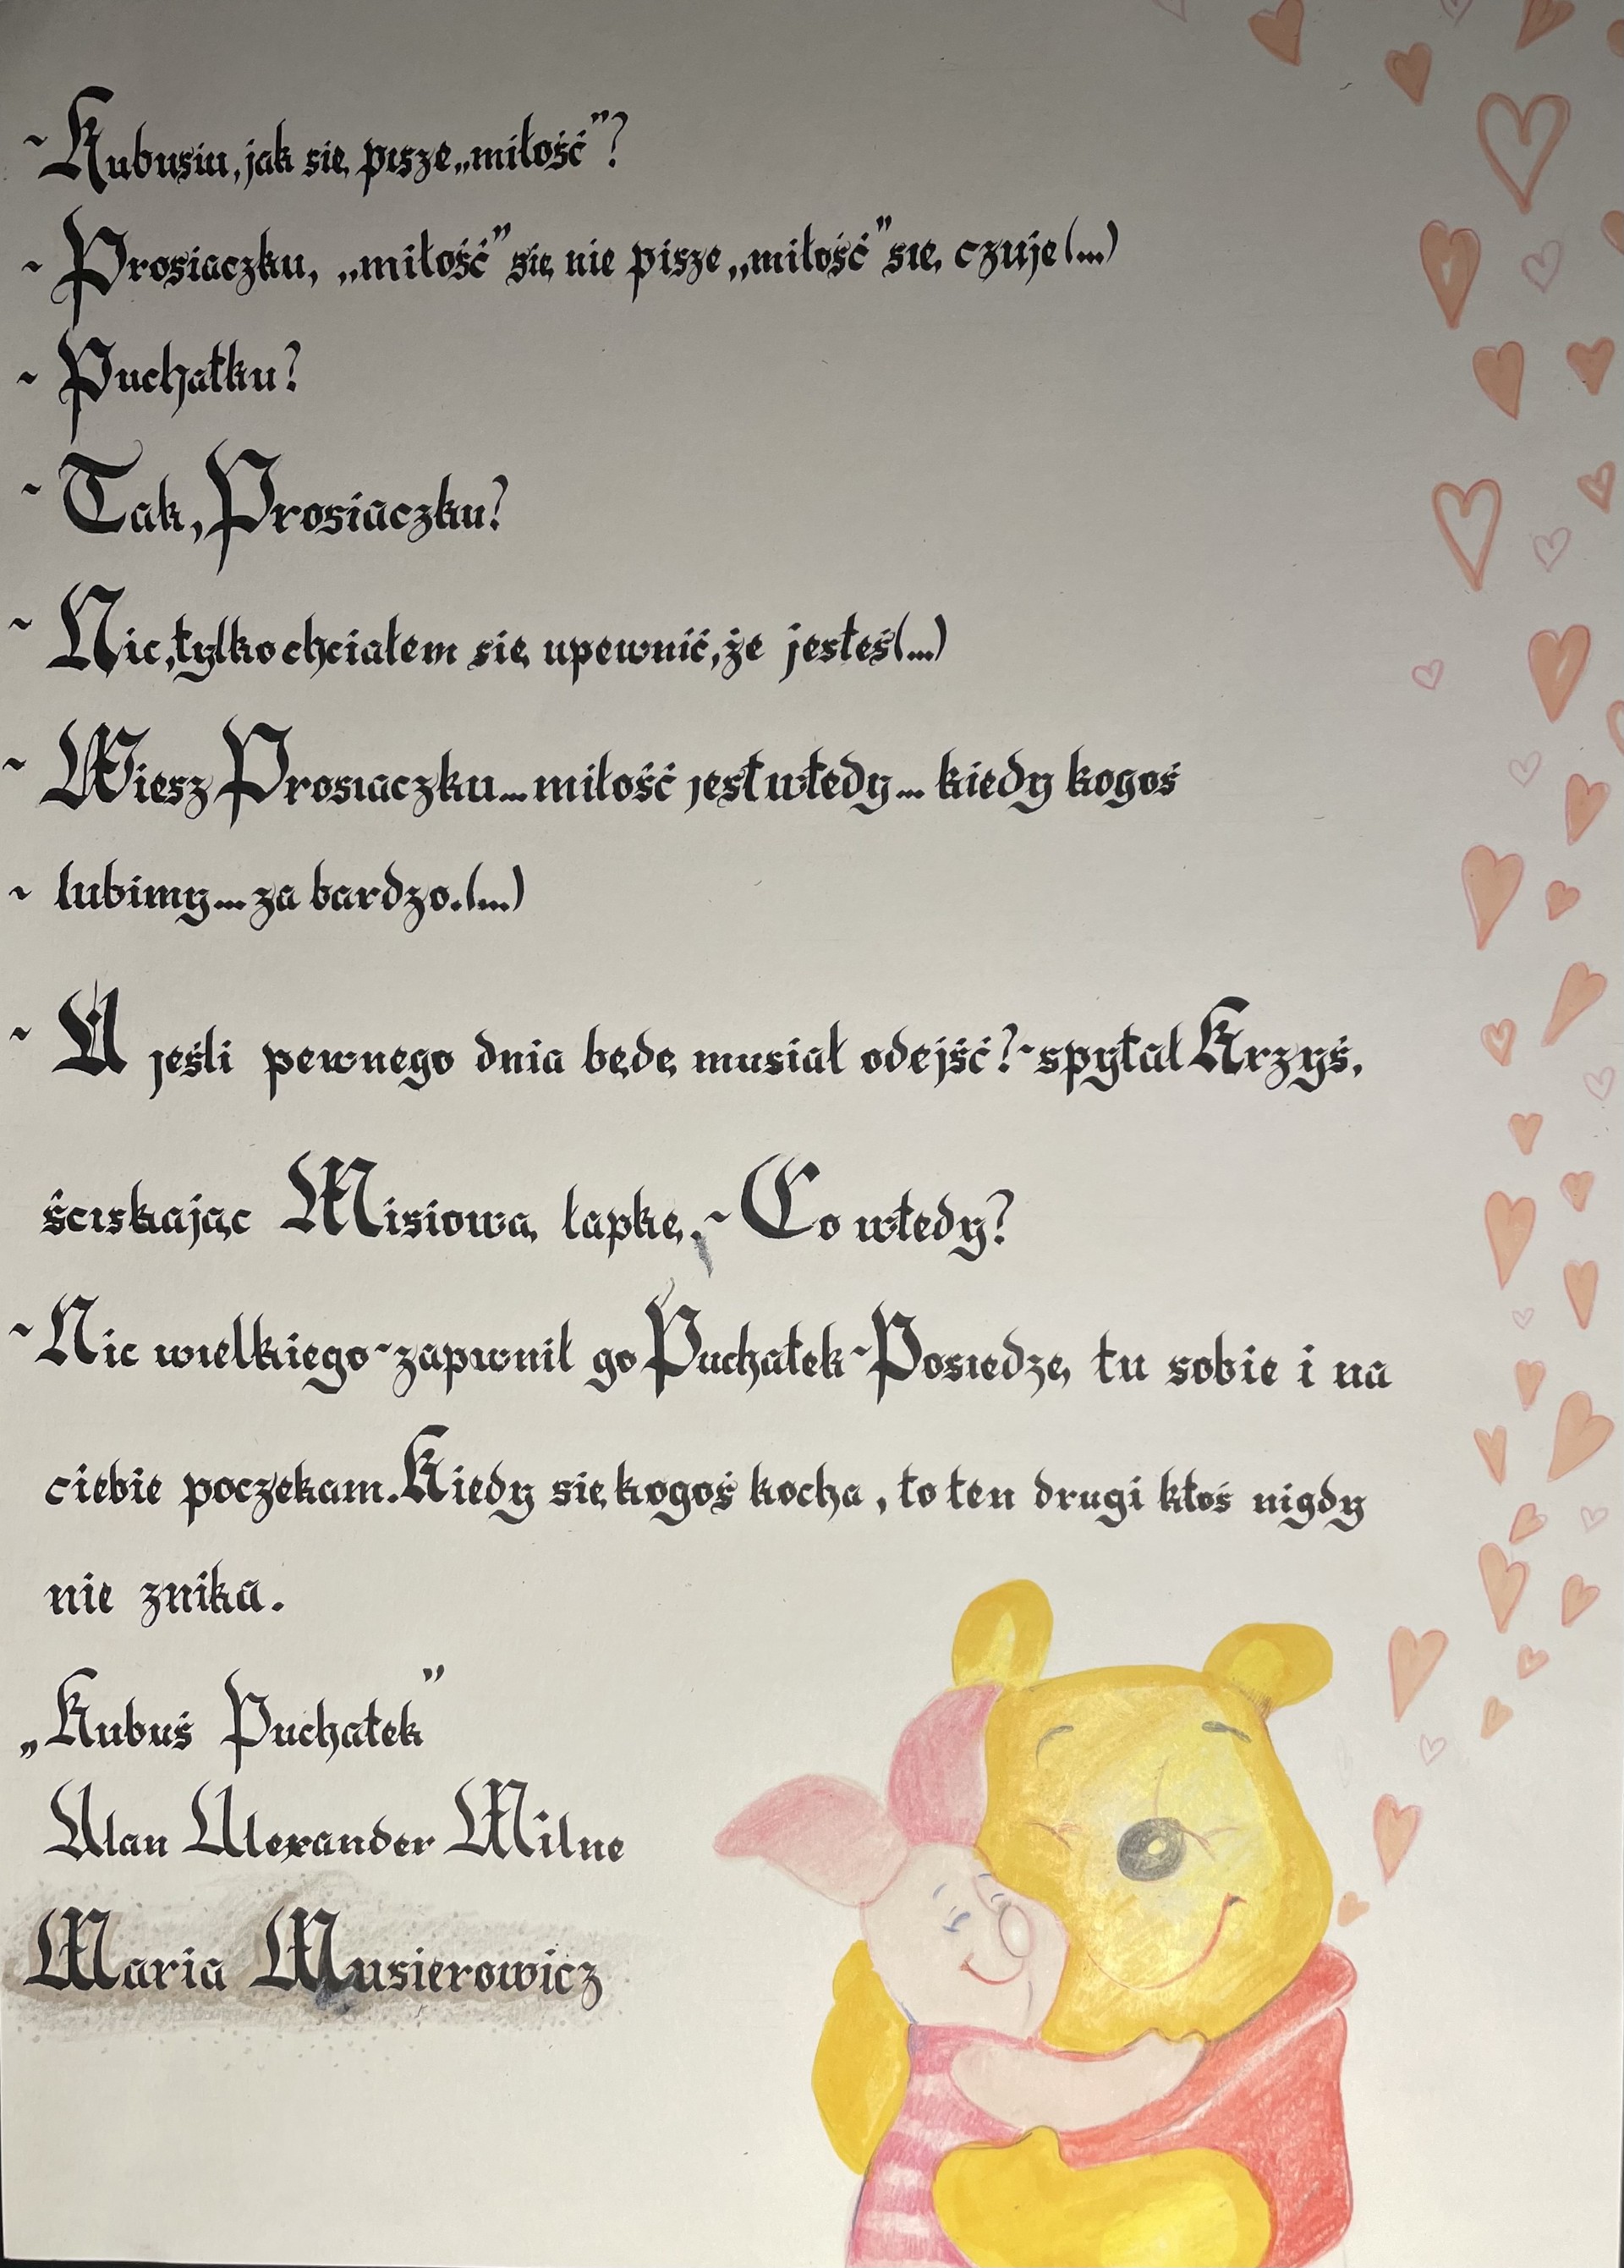 ~ Kubusiu, jak się pisze „miłość"?
~ Prosiaczku, „miłość" się nie pisze „miłość" się czuje (...)
~ Puchatku?
~ Tak, Prosiaczku?
~ Nic, tylko chciałem się upewnić, że jesteś (...)
~ Wiesz Prosiaczku... miłość jest wtedy... kiedy kogoś
~ lubimy... za bardzo. (...)
~ A jeśli pewnego dnia będę musiał odejść? ~ spytał Krzyś,
ściskając Misiową łapkę. ~ Co wtedy?
~ Nic wielkiego ~ zapwnił go Puchatek ~ Posiedzę tu sobie i na
ciebie poczekam. Kiedy się kogoś kocha, to ten drugi ktoś nigdy
nie znika.
„Kubuś Puchatek"
Alan Alexander Milne
Maria Musierowicz